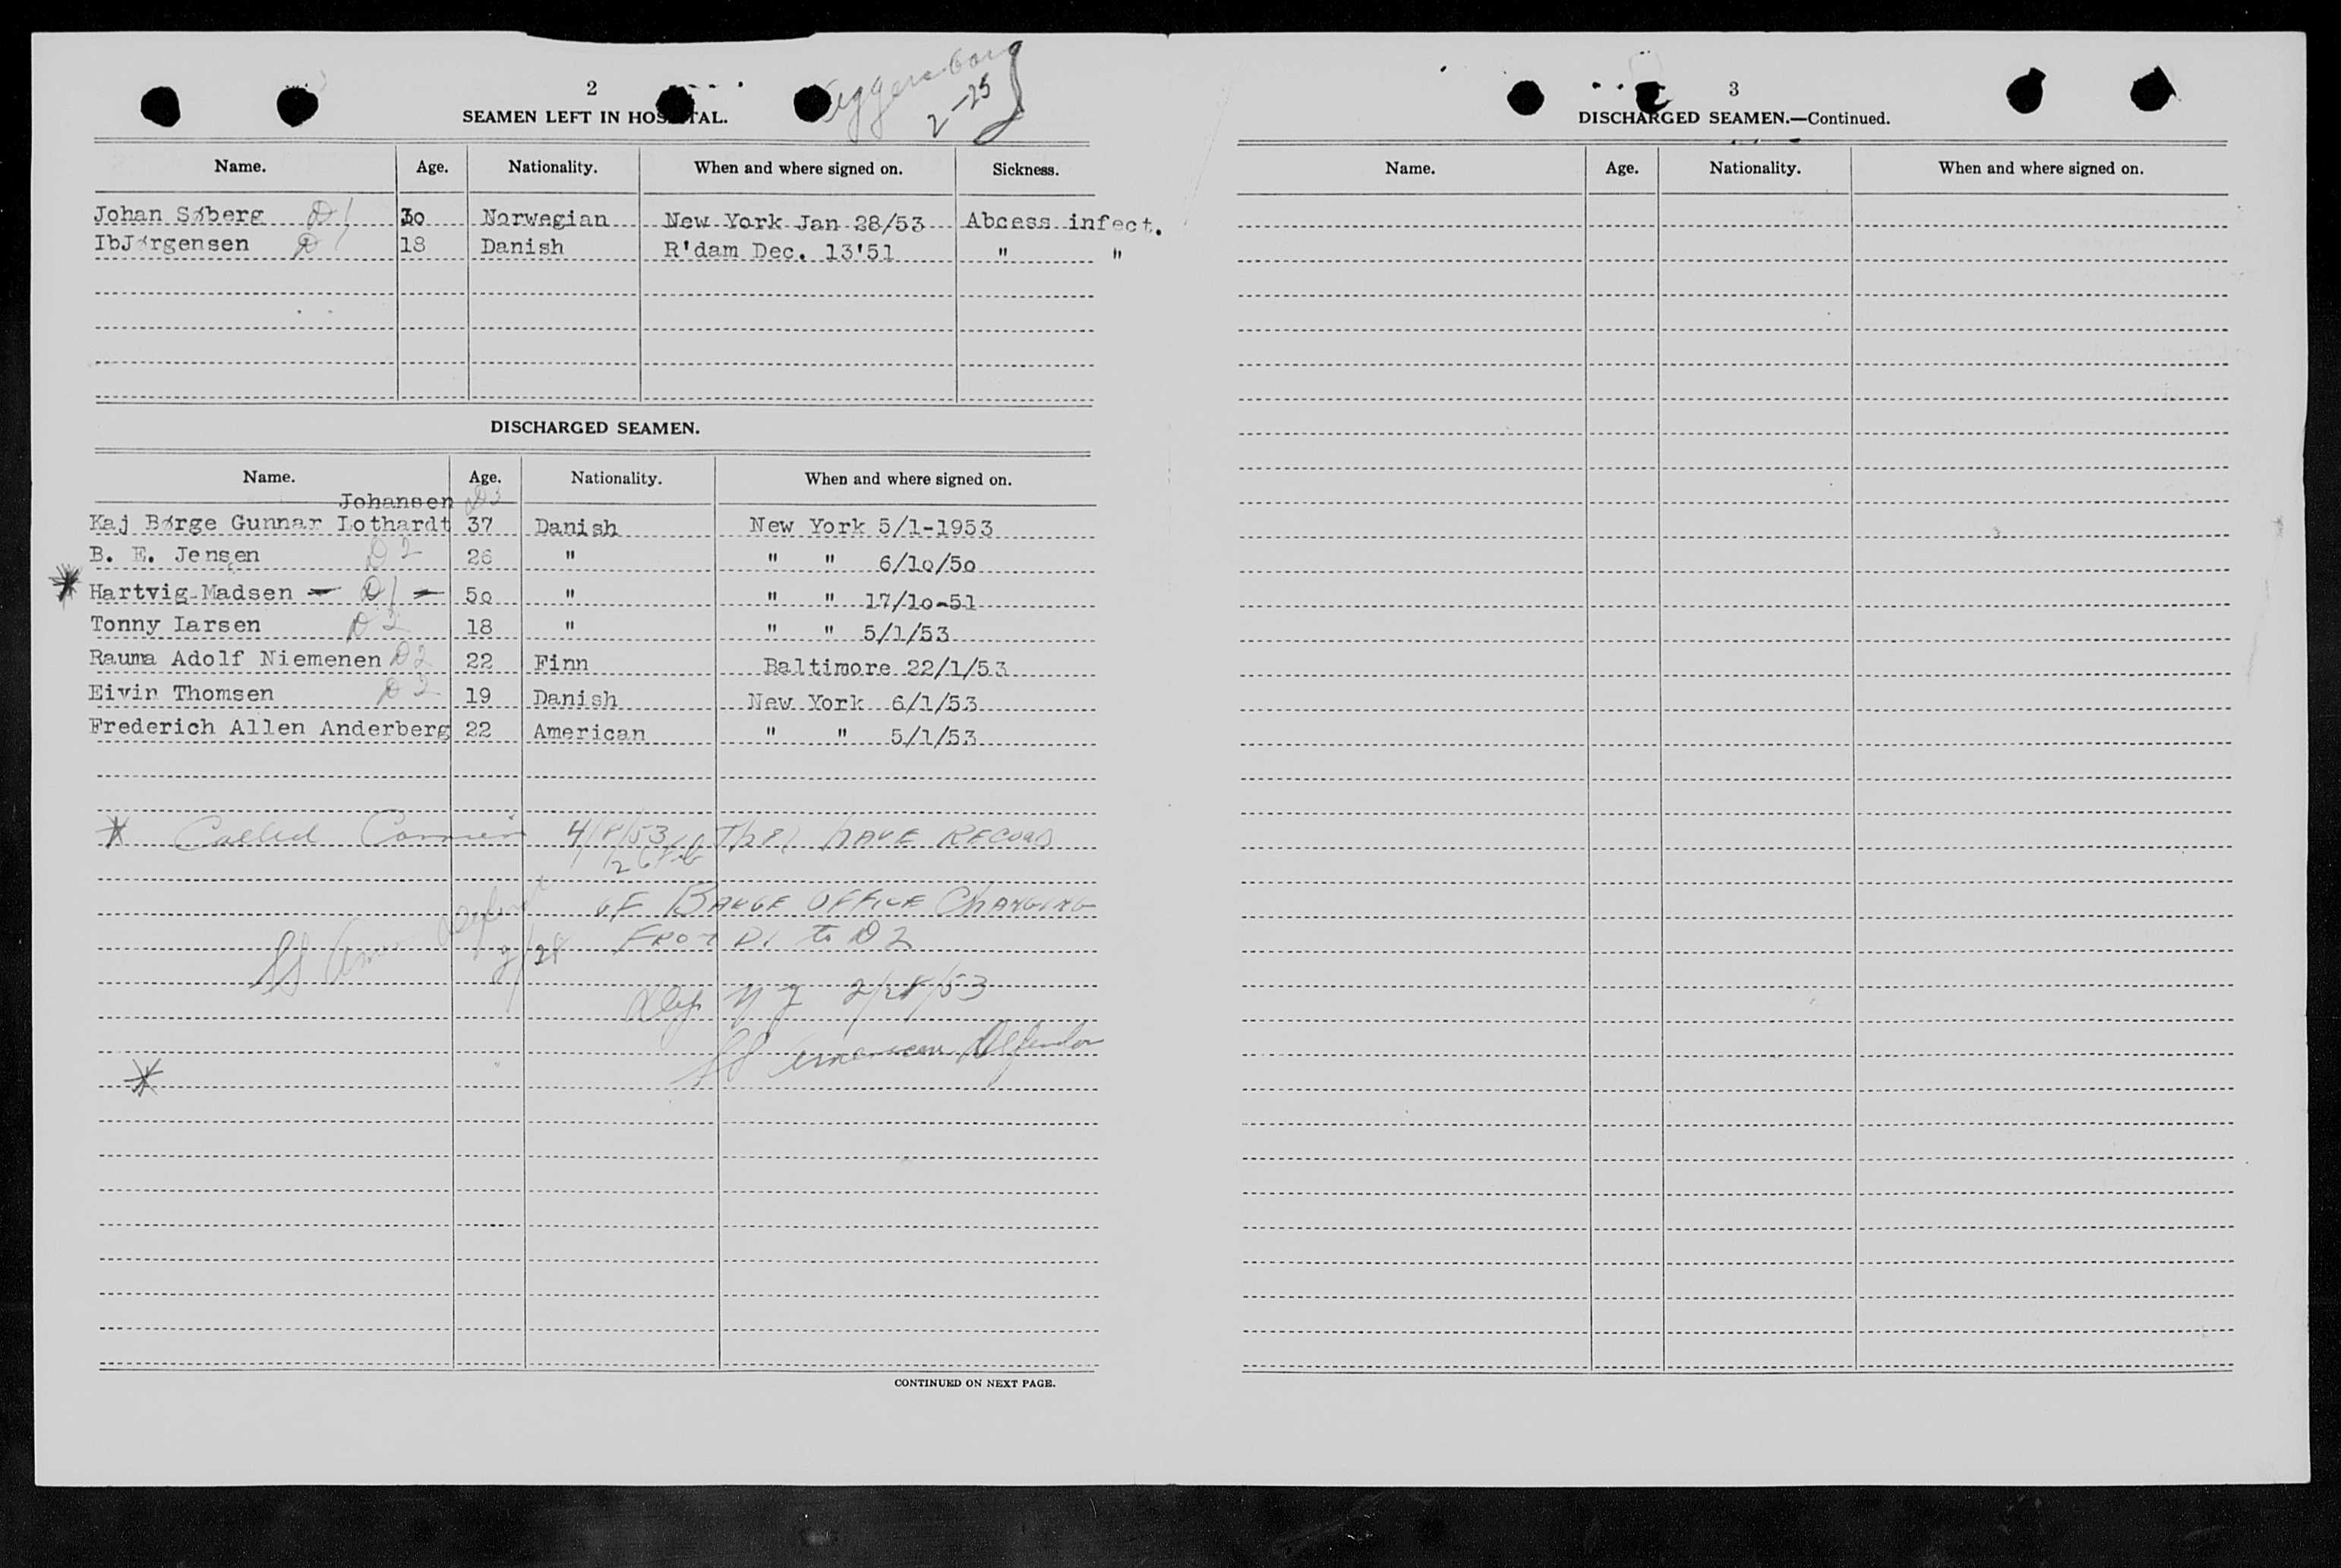 2
SEAMEN LEFT IN HOSPITAL.
2-25
Name. Age. Nationality. When and where signed on. Sickness.
Johan Søberg D1 30 Norwegian New York Jan 28/53 Abcess infect.
IbJørgensen D1 18 Danish R'dam Dec. 13'51 " "
DISCHARGED SEAMEN.
Name. Age. Nationality. When and where signed on.
Johansen D3
Kaj Børge Gunnar Lothardt 37 Danish New York 5/1-1953
B. E. Jensen D2 26 " " " 6/10/50
* Hartvig Madsen - D1 - 50 " " " 17/10-51
Tonny Iarsen D2 18 " " " 5/1/53
Rauma Adolf Niemenen D2 22 Finn Baltimore 22/1/53
Eivin Thomsen D2 19 Danish New York 6/1/53
Frederich Allen Anderberg 22 American " " 5/1/53
* Called 4/8/53 They HAVE RECORD
26 Feb
OF BARGE OFFICE CHANGING
FROM D1 to D2
SS Amer Defend 2/28
Dep N Y 2/28/53
SS American Defender
*
CONTINUED ON NEXT PAGE.
3
DISCHARGED SEAMEN.—Continued.
Name. Age. Nationality. When and where signed on.